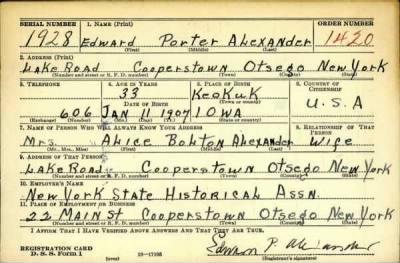 SERIAL NUMBER 1. NAME (Print) ORDER NUMBER
1928 Edward Porter Alexander 1420
(First) (Middle) (Last)
2. ADDRESS (Print)
Lake Road Cooperstown Otsego New York
(Number and street or R. F. D. number) (Town) (County) (State)
3. TELEPHONE 4. AGE IN YEARS 5. PLACE OF BIRTH 6. COUNTRY OF CITIZENSHIP
33 Keokuk
DATE OF BIRTH (Town or county)
606 Jan 11 1907 Iowa U.S.A
(Exchange) (Number) (Mo.) (Day) (Yr.) (State or country)
7. NAME OF PERSON WHO WILL ALWAYS KNOW YOUR ADDRESS 8. RELATIONSHIP OF THAT PERSON
Mrs. Alice Bolton Alexander Wife
(Mr., Mrs., Miss) (First) (Middle) (Last)
9. ADDRESS OF THAT PERSON
Lake Road Cooperstown Otsego New York
(Number and street or R. F. D. number) (Town) (County) (State)
10. EMPLOYER'S NAME
New York State Historical Assn.
11. PLACE OF EMPLOYMENT OR BUSINESS
22 Main St Cooperstown Otsego New York
(Number and street or R. F. D. number) (Town) (County) (State)
I AFFIRM THAT I HAVE VERIFIED ABOVE ANSWERS AND THAT THEY ARE TRUE.
REGISTRATION CARD
D. S. S. FORM 1 16-17105 Edward P. Alexander
(Registrant's signature)